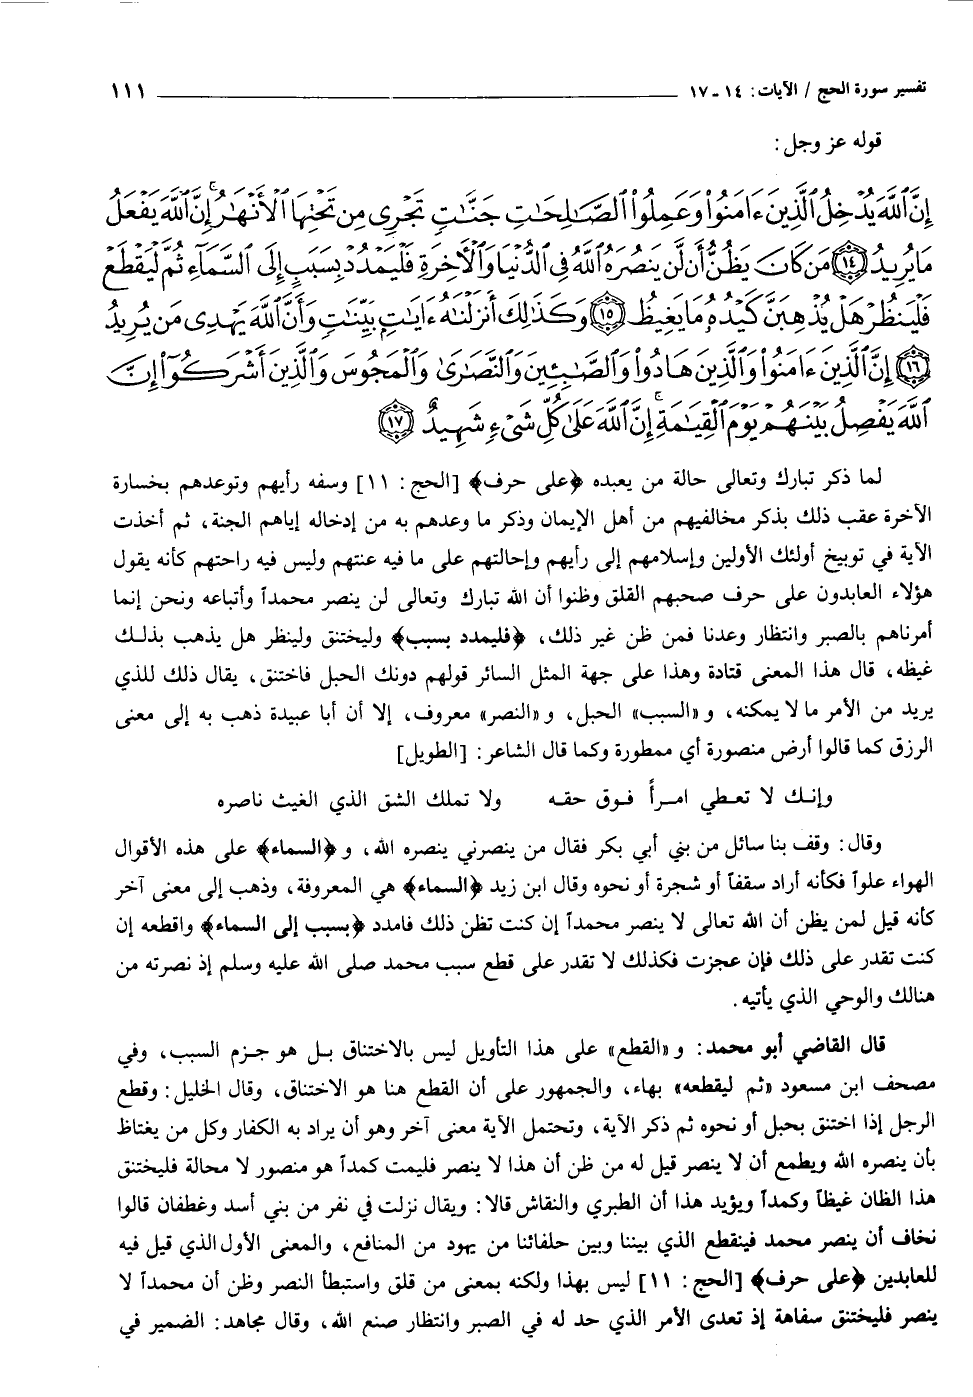 تفسير سورة الحج / الآيات: ١٤ - ١٧ ــــــ ١١١
قوله عز وجل:
إِنَّ ٱللَّهَ يُدْخِلُ ٱلَّذِينَ ءَامَنُوا۟ وَعَمِلُوا۟ ٱلصَّـٰلِحَـٰتِ جَنَّـٰتٍ تَجْرِى مِن تَحْتِهَا ٱلْأَنْهَـٰرُ ۚ إِنَّ ٱللَّهَ يَفْعَلُ
مَا يُرِيدُ ﴿١٤﴾ مَن كَانَ يَظُنُّ أَن لَّن يَنصُرَهُ ٱللَّهُ فِى ٱلدُّنْيَا وَٱلْـَٔاخِرَةِ فَلْيَمْدُدْ بِسَبَبٍ إِلَى ٱلسَّمَآءِ ثُمَّ لْيَقْطَعْ
فَلْيَنظُرْ هَلْ يُذْهِبَنَّ كَيْدُهُۥ مَا يَغِيظُ ﴿١٥﴾ وَكَذَٰلِكَ أَنزَلْنَـٰهُ ءَايَـٰتٍۭ بَيِّنَـٰتٍ وَأَنَّ ٱللَّهَ يَهْدِى مَن يُرِيدُ
﴿١٦﴾ إِنَّ ٱلَّذِينَ ءَامَنُوا۟ وَٱلَّذِينَ هَادُوا۟ وَٱلصَّـٰبِـِٔينَ وَٱلنَّصَـٰرَىٰ وَٱلْمَجُوسَ وَٱلَّذِينَ أَشْرَكُوٓا۟ إِنَّ
ٱللَّهَ يَفْصِلُ بَيْنَهُمْ يَوْمَ ٱلْقِيَـٰمَةِ ۚ إِنَّ ٱللَّهَ عَلَىٰ كُلِّ شَىْءٍ شَهِيدٌ ﴿١٧﴾
لما ذكر تبارك وتعالى حالة من يعبده ﴿على حرف﴾ [الحج: ١١] وسفه رأيهم وتوعدهم بخسارة
الآخرة عقب ذلك بذكر مخالفيهم من أهل الإيمان وذكر ما وعدهم به من إدخاله إياهم الجنة، ثم أخذت
الآية في توبيخ أولئك الأولين وإسلامهم إلى رأيهم وإحالتهم على ما فيه عنتهم وليس فيه راحتهم كأنه يقول
هؤلاء العابدون على حرف صحبهم القلق وظنوا أن الله تبارك وتعالى لن ينصر محمداً وأتباعه ونحن إنما
أمرناهم بالصبر وانتظار وعدنا فمن ظن غير ذلك، ﴿فليمدد بسبب﴾ وليختنق ولينظر هل يذهب بذلك
غيظه، قال هذا المعنى قتادة وهذا على جهة المثل السائر قولهم دونك الحبل فاختنق، يقال ذلك للذي
يريد من الأمر ما لا يمكنه، و «السبب» الحبل، و «النصر» معروف، إلا أن أبا عبيدة ذهب به إلى معنى
الرزق كما قالوا أرض منصورة أي ممطورة وكما قال الشاعر: [الطويل]
وإنك لا تعطي امرأً فوق حقه ولا تملك الشق الذي الغيث ناصره
وقال: وقف بنا سائل من بني أبي بكر فقال من ينصرني ينصره الله، و ﴿السماء﴾ على هذه الأقوال
الهواء علواً فكأنه أراد سقفاً أو شجرة أو نحوه وقال ابن زيد ﴿السماء﴾ هي المعروفة، وذهب إلى معنى آخر
كأنه قيل لمن يظن أن الله تعالى لا ينصر محمداً إن كنت تظن ذلك فامدد ﴿بسبب إلى السماء﴾ واقطعه إن
كنت تقدر على ذلك فإن عجزت فكذلك لا تقدر على قطع سبب محمد صلى الله عليه وسلم إذ نصرته من
هنالك والوحي الذي يأتيه.
قال القاضي أبو محمد: و «القطع» على هذا التأويل ليس بالاختناق بل هو جزم السبب، وفي
مصحف ابن مسعود «ثم ليقطعه» بهاء، والجمهور على أن القطع هنا هو الاختناق، وقال الخليل: وقطع
الرجل إذا اختنق بحبل أو نحوه ثم ذكر الآية، وتحتمل الآية معنى آخر وهو أن يراد به الكفار وكل من يغتاظ
بأن ينصره الله ويطمع أن لا ينصر قيل له من ظن أن هذا لا ينصر فليمت كمداً هو منصور لا محالة فليختنق
هذا الظان غيظاً وكمداً ويؤيد هذا أن الطبري والنقاش قالا: ويقال نزلت في نفر من بني أسد وغطفان قالوا
نخاف أن ينصر محمد فينقطع الذي بيننا وبين حلفائنا من يهود من المنافع، والمعنى الأول الذي قيل فيه
للعابدين ﴿على حرف﴾ [الحج: ١١] ليس بهذا ولكنه بمعنى من قلق واستبطأ النصر وظن أن محمداً لا
ينصر فليختنق سفاهة إذ تعدى الأمر الذي حد له في الصبر وانتظار صنع الله، وقال مجاهد: الضمير في